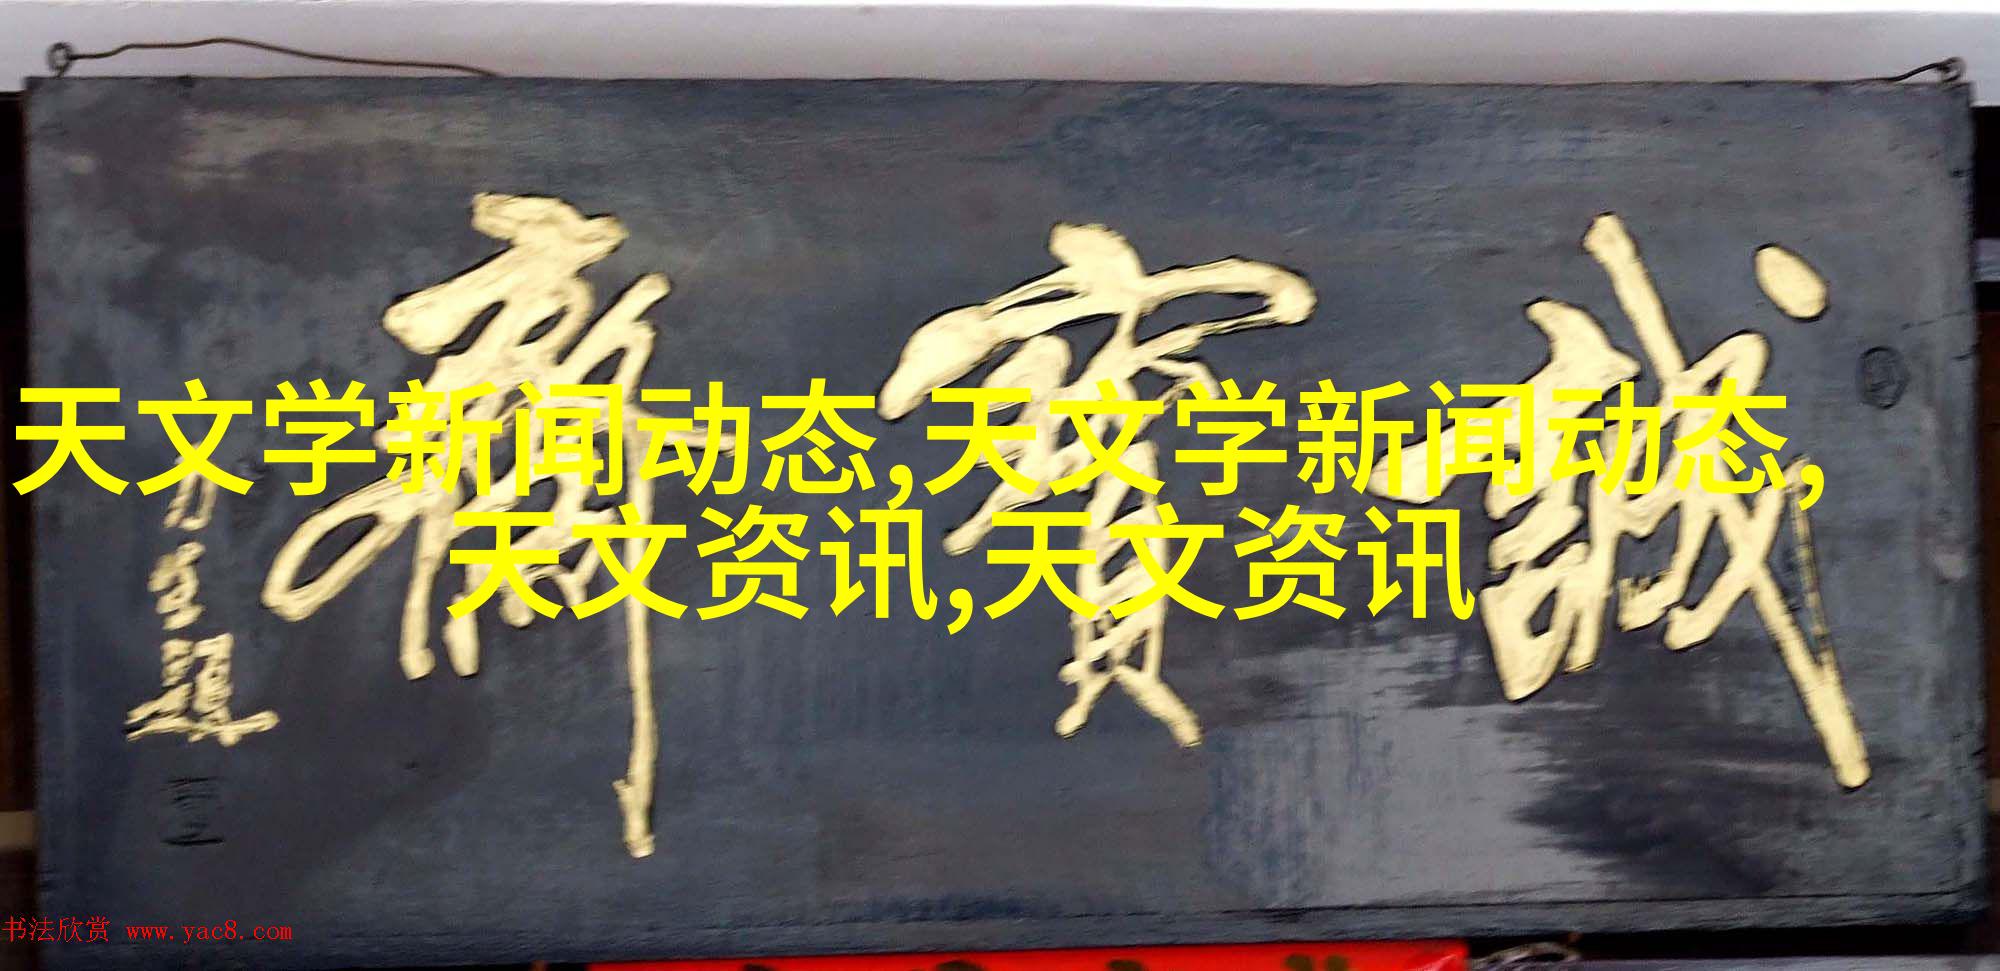 誠寶齋
力生題
天文学新闻动态,天文学新闻动态,
天文资讯,天文资讯
书法欣赏 www.yac8.com